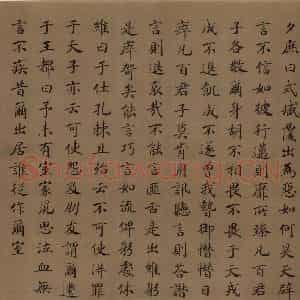 夕庶曰式臧覆出為惡如何昊天辟
言不信如彼行邁則靡所臻凡百君
子各敬爾身胡不相畏不畏于天戎
成不退飢成不遂曾我暬御憯憯日
瘁凡百君子莫肯用訊聽言則答譖
言則退哀哉不能言匪舌是出維躬
是瘁哿矣能言巧言如流俾躬處休
維曰于仕孔棘且殆云不可使得罪
于天子亦云可使怨及朋友謂爾遷
于王都曰予未有室家鼠思泣血無
言不疾昔爾出居誰從作爾室